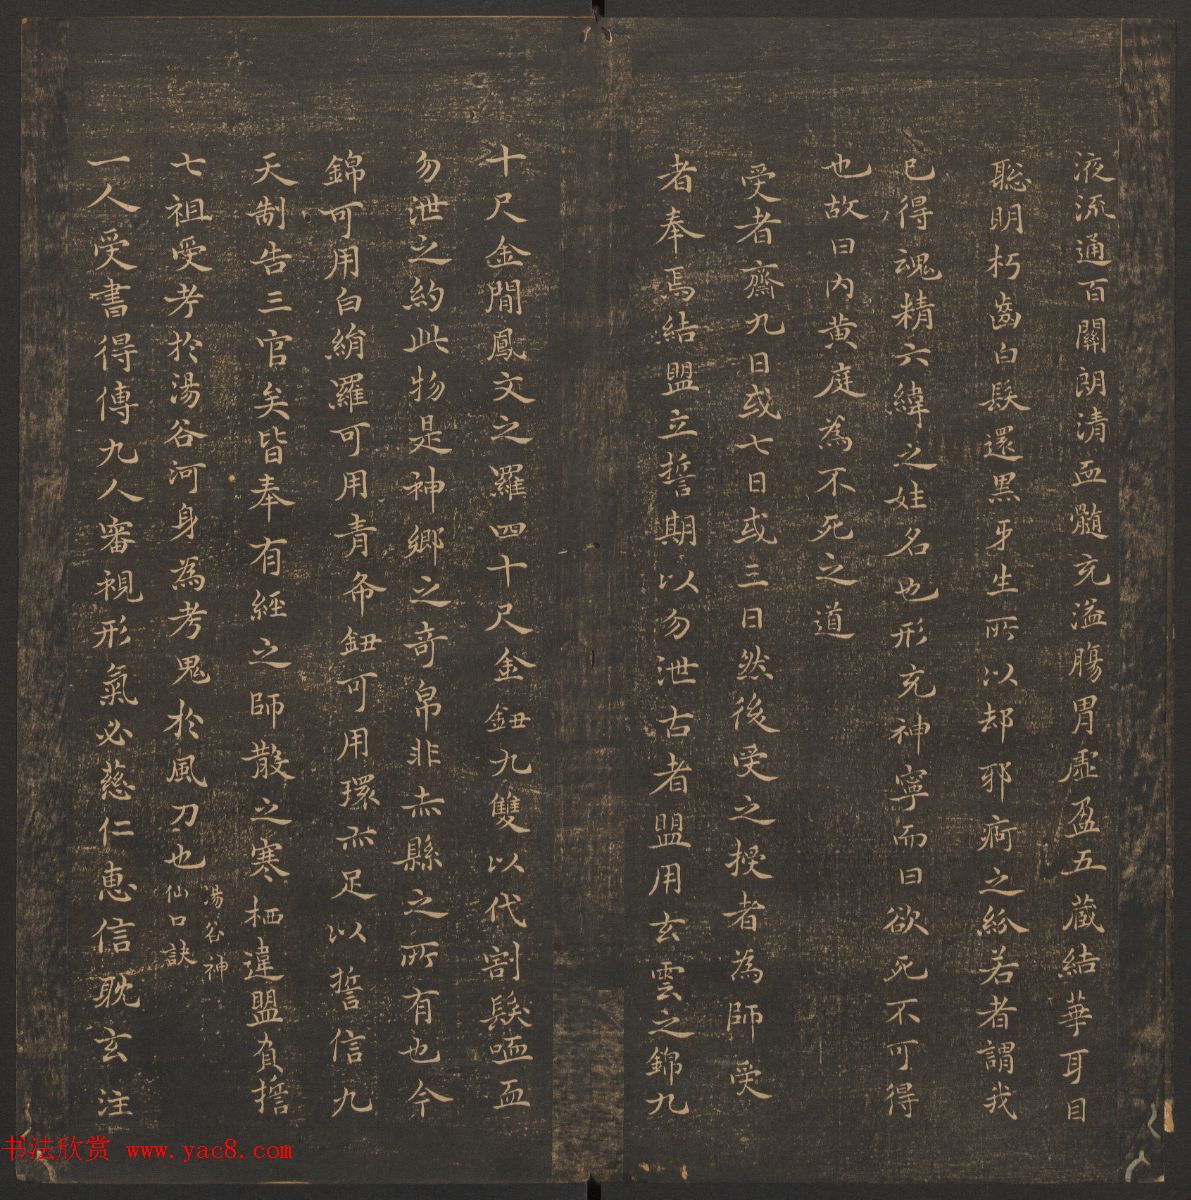 液流通百關朗清血髓充溢腸胃虛盈五藏結華耳目
聡明朽齒白髮還黒牙生所以却邪痾之紛若者謂我
已得魂精六緯之姓名也形充神寧而曰欲死不可得
也故曰內黄庭為不死之道
受者齋九日或七日或三日然後受之授者為師受
者奉焉結盟立誓期以勿泄古者盟用玄雲之錦九
十尺金簡鳳文之羅四十尺金鈕九雙以代割髮歃血
勿泄之約此物是神鄉之奇帛非赤縣之所有也今
錦可用白絹羅可用青布鈕可用環亦足以誓信九
天制告三官矣皆奉有經之師散之寒栖違盟負擔
七祖受考於湯谷河身為考鬼於風刀也
湯谷神
仙口訣
一人受書得傳九人審視形氣必慈仁惠信耽玄注
书法欣赏 www.yac8.com